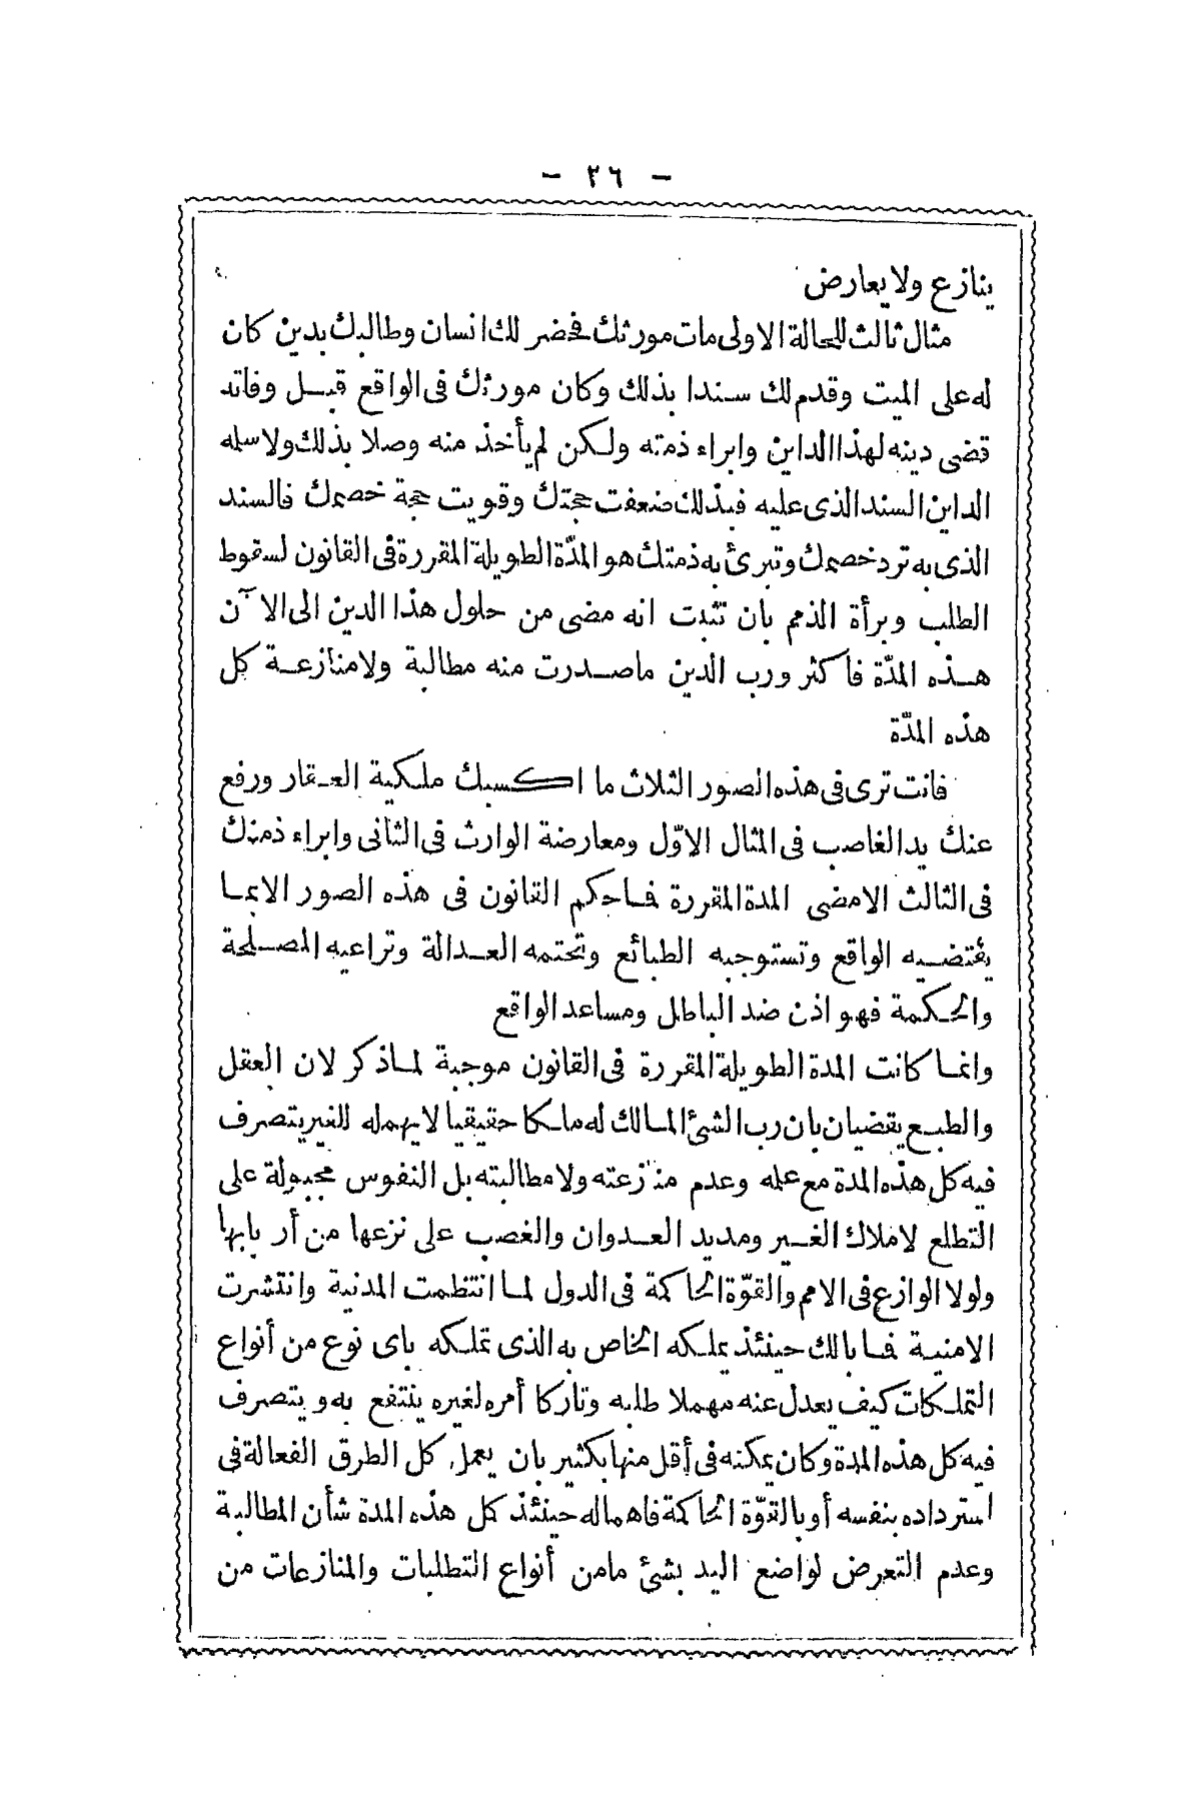 — ٣٦ —
ينازع ولا يعارض
مثال ثالث للحالة الاولى مات مورثك فحضر لك انسان وطالبك بدين كان
له على الميت وقدم لك سندا بذلك وكان مورثك فى الواقع قبل وفاته
قضى دينه لهذا الداين وابراء ذمته ولكن لم يأخذ منه وصلا بذلك ولا سله
الداين السند الذى عليه فبذلك ضعفت حجتك وقويت حجة خصمك فالسند
الذى به ترد خصمك وتبرئ به ذمتك هو المدّة الطويلة المقررة فى القانون لسقوط
الطلب وبرأة الذمم بان تثبت انه مضى من حلول هذا الدين الى الآن
هذه المدّة فاكثر ورب الدين ما صدرت منه مطالبة ولا منازعة كل
هذه المدّة
فانت ترى فى هذه الصور الثلاث ما اكسبك ملكية العقار ورفع
عنك يد الغاصب فى المثال الاوّل ومعارضة الوارث فى الثانى وابراء ذمتك
فى الثالث الا مضى المدة المقررة فما حكم القانون فى هذه الصور الا بما
يقتضيه الواقع وتستوجبه الطبائع وتحتمه العدالة وتراعيه المصلحة
والحكمة فهو اذن ضد الباطل ومساعد الواقع
وانما كانت المدة الطويلة المقررة فى القانون موجبة لماذكر لان العقل
والطبع يقضيان بان رب الشئ المالك له ملكا حقيقيا لا يهمله للغير يتصرف
فيه كل هذه المدة مع علمه وعدم منازعته ولا مطالبته بل النفوس مجبولة على
التطلع لاملاك الغير ومديد العدوان والغصب على نزعها من أربابها
ولولا الوازع فى الامم والقوّة الحاكمة فى الدول لما انتظمت المدنية وانتشرت
الامنية فما بالك حينئذ بملكه الخاص به الذى تملكه باى نوع من أنواع
التملكات كيف يعدل عنه مهملا طلبه وتاركا أمره لغيره ينتفع به ويتصرف
فيه كل هذه المدة وكان يمكنه فى أقل منها بكثير بان يعمل كل الطرق الفعالة فى
استرداده بنفسه أو بالقوّة الحاكمة فاهماله حينئذ كل هذه المدة شأن المطالبة
وعدم التعرض لواضع اليد بشئ مامن أنواع التطلبات والمنازعات من